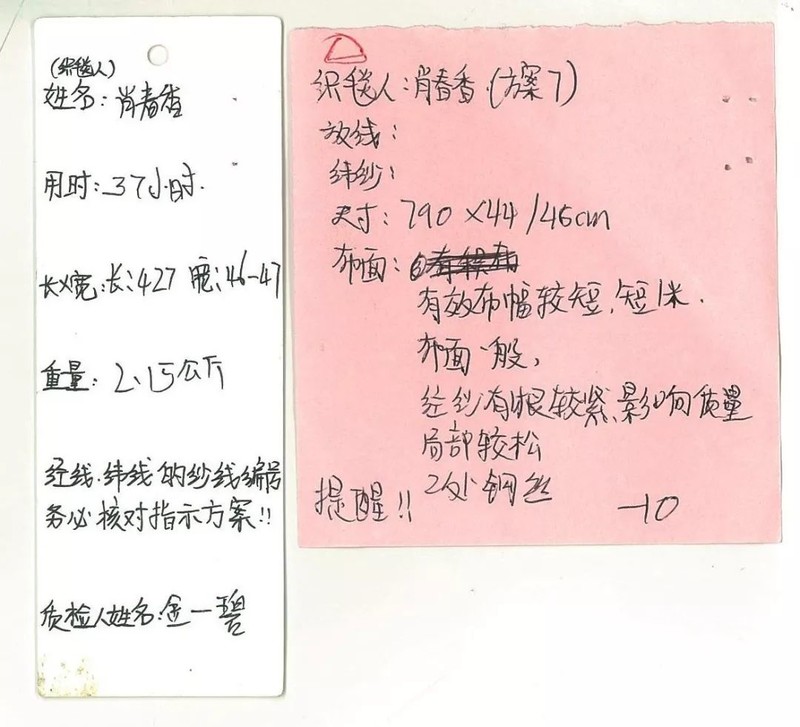 (织毯人)
姓名：肖春香
用时：37小时.
长X宽：长：427 宽：46-47
重量：2.15公斤
经线.纬线的纱线编号
务必核对指示方案!!
质检人姓名：金一碧
织毯人：肖春香(方案7)
放线：
纬纱：
尺寸：790×44/46cm
布面：
有效布幅较短,短1米.
布面一般,
经纱有根较紧,影响质量
局部较松
2处钢丝
提醒!!
-10